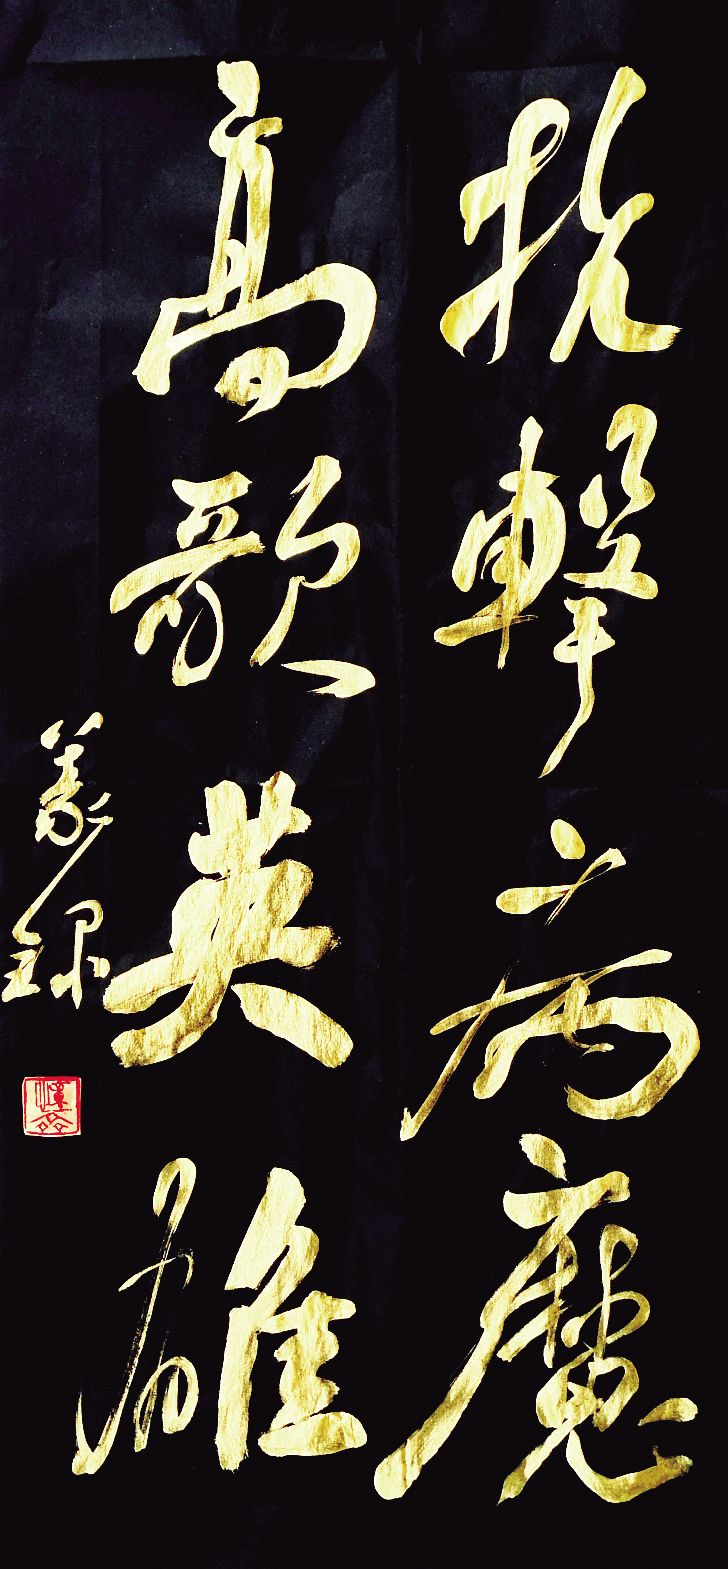 抗擊病魔
高歌英雄